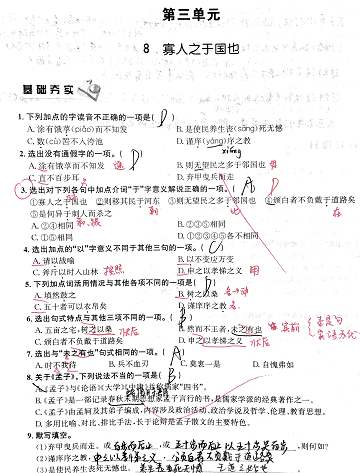 第三单元
8 . 寡人之于国也
基础夯实
1. 下列加点的字读音不正确的一项是( D )
A. 涂有饿莩(piǎo)而不知发 B. 是使民养生丧(sāng)死无憾
C. 数(cù)罟不入洿池 D. 谨庠(yáng)序之教
xiáng
2. 选出没有通假字的一项。( D )
A. 涂有饿莩而不知发 途 B. 则无望民之多于邻国也
C. 直不百步耳 D. 弃甲曳兵而走
3. 选出对下列各句中加点介词"于"字意义解说正确的一项。( A )
①寡人之于国也 ②则移其民于河东 ③则无望民之多于邻国也 ④颁白者不负戴于道路矣
⑤是何异于刺人而杀之
A. ②④相同 B. ②③⑤相同
C. ①⑤相同 D. ①②③④⑤各不相同
4. 选出加点的"以"字意义不同于其他三句的一项。( C )
A. 请以战喻 B. 以不变应万变
C. 斧斤以时入山林 按照 D. 申之以孝悌之义 用
5. 下列加点词活用情况与其他各项不同的一项是( B )
A. 填然鼓之 B. 树之以桑
C. 五十者可以衣帛矣 D. 谨庠序之教
6. 选出句式特点与其他三项不同的一项。( B )
A. 五亩之宅,树之以桑 状后 B. 然而不王者,未之有也 宾前
C. 颁白者不负戴于道路 D. 申之以孝悌之义 状后
7. 选出与"未之有也"句式相同的一项。( A )
A. 时不我待 B. 兵不血刃 C. 莫衷一是 D. 自愧弗如
8. 关于《孟子》,下列说法不当的一项是(
A. 《孟子》与《论语》《大学》《中庸》并称儒家"四书"。
B. 《孟子》是一部记录春秋末期思想家孟子言行的书,是儒家学派的经典著作之一。
C. 《孟子》由孟轲及其弟子编成,内容涉及政治活动、政治学说及哲学、伦理、教育思想。
D. 多用比喻、对比、排比手法,长于论辩是孟子散文的主要特色。
9. 默写填空。
(1)弃甲曳兵而走。或百步而后止,或五十步而后止,以五十步笑百步,则何如?
(2)谨庠序之教,申之以孝悌之义,颁白者不负戴于道路矣。
(3)是使民养生丧死无憾也